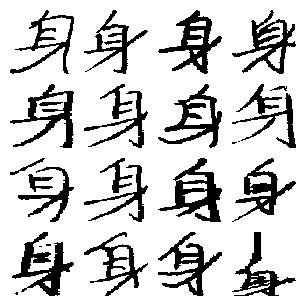 身身身身
身身身身
身身身身
身身身身